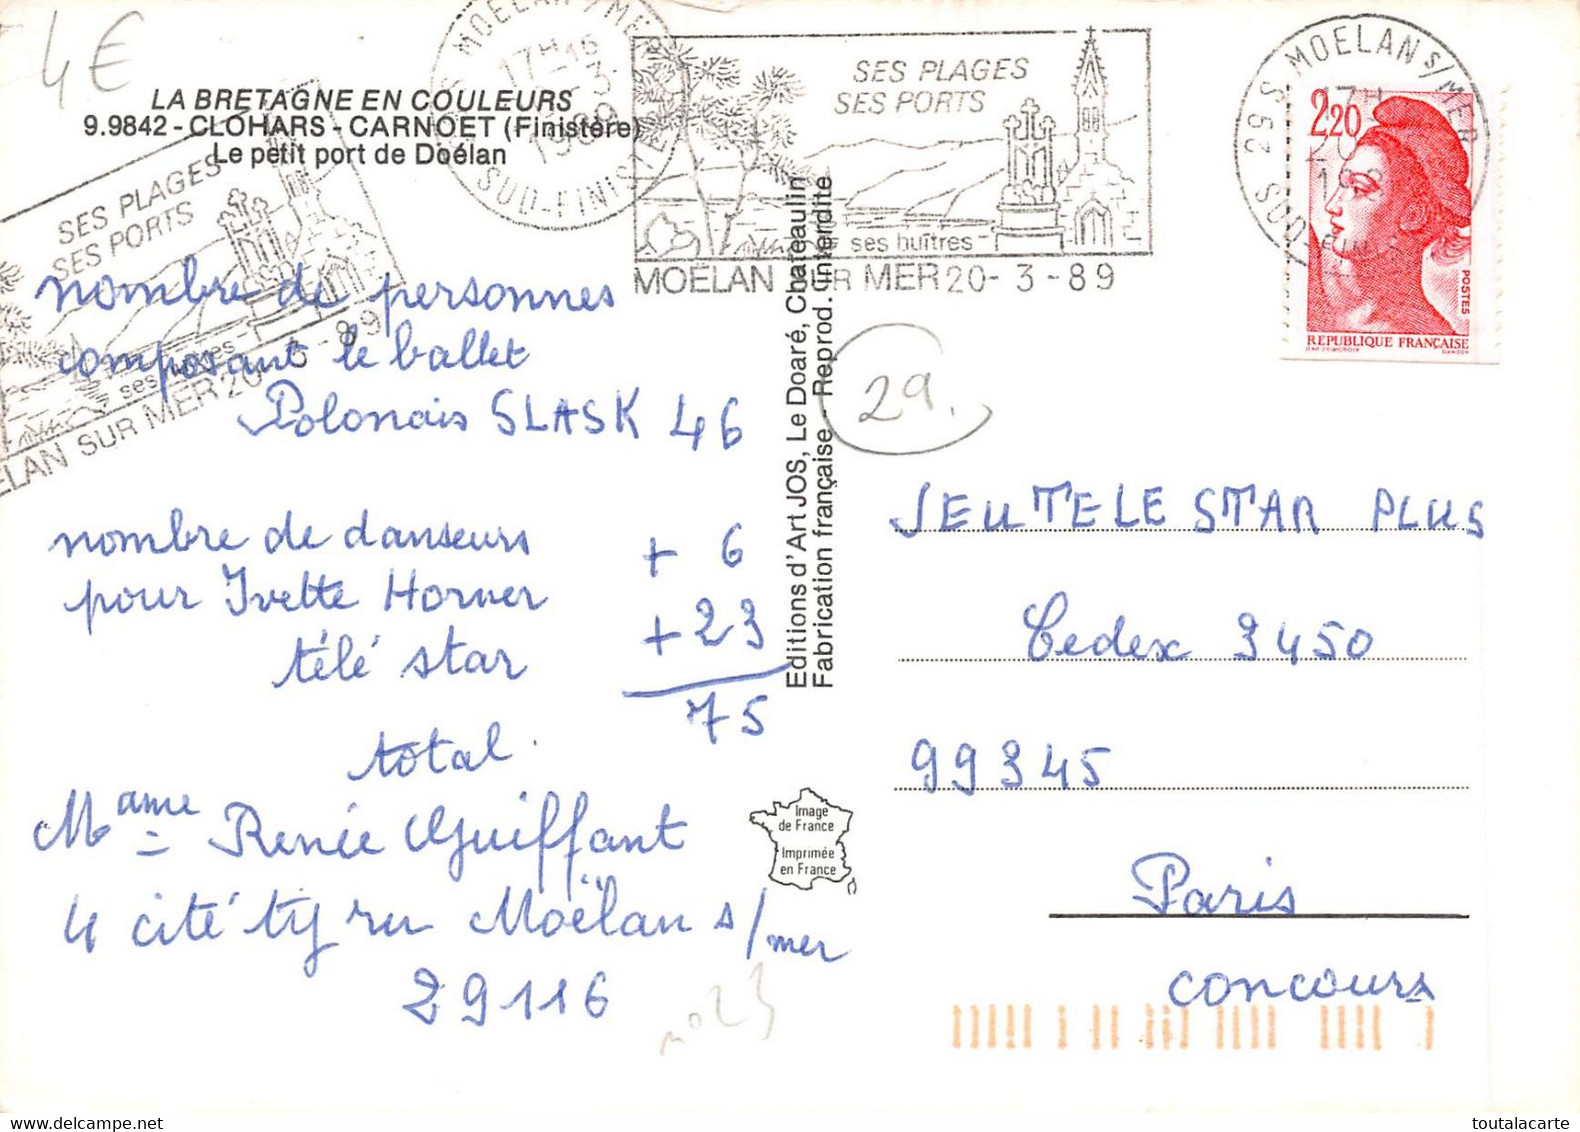 4€
LA BRETAGNE EN COULEURS
9.9842 - CLOHARS - CARNOET (Finistère)
Le petit port de Doëlan
MOELAN S/MER
17H
1989
SUD-FINISTERE
SES PLAGES
SES PORTS
ses huîtres
MOËLAN SUR MER 20-3-89
29 S MOELAN S/MER
17H
SUD FIN
2,20
POSTES
REPUBLIQUE FRANÇAISE
GANDON
SES PLAGES
SES PORTS
ELAN SUR MER 20-3-89
nombre de personnes
composant le ballet
Polonais SLASK 46
nombre de danseurs + 6
pour Yvette Horner + 23
télé star
75
total.
Mame Renée Guiffant
4 cité ty ru Moëlan s/mer
29116
n°23
Editions d'Art JOS, Le Doaré, Chateaulin
Fabrication française - Reprod. interdite
Image
de France
Imprimée
en France
29.
JEU TELE STAR PLUS
Cedex 3450
99345
Paris
concours
www.toutalacarte.com